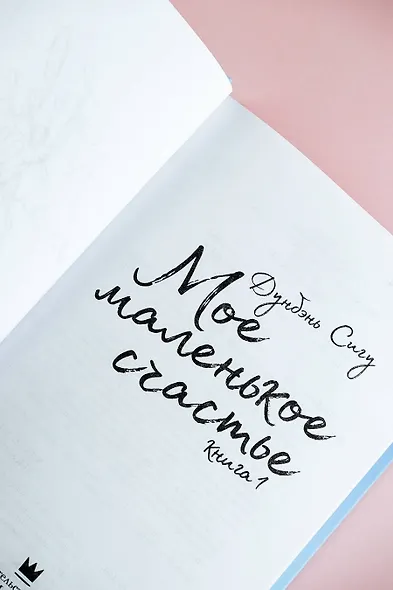 Дунбэнь Сигу
Мое
маленькое
счастье
Книга 1